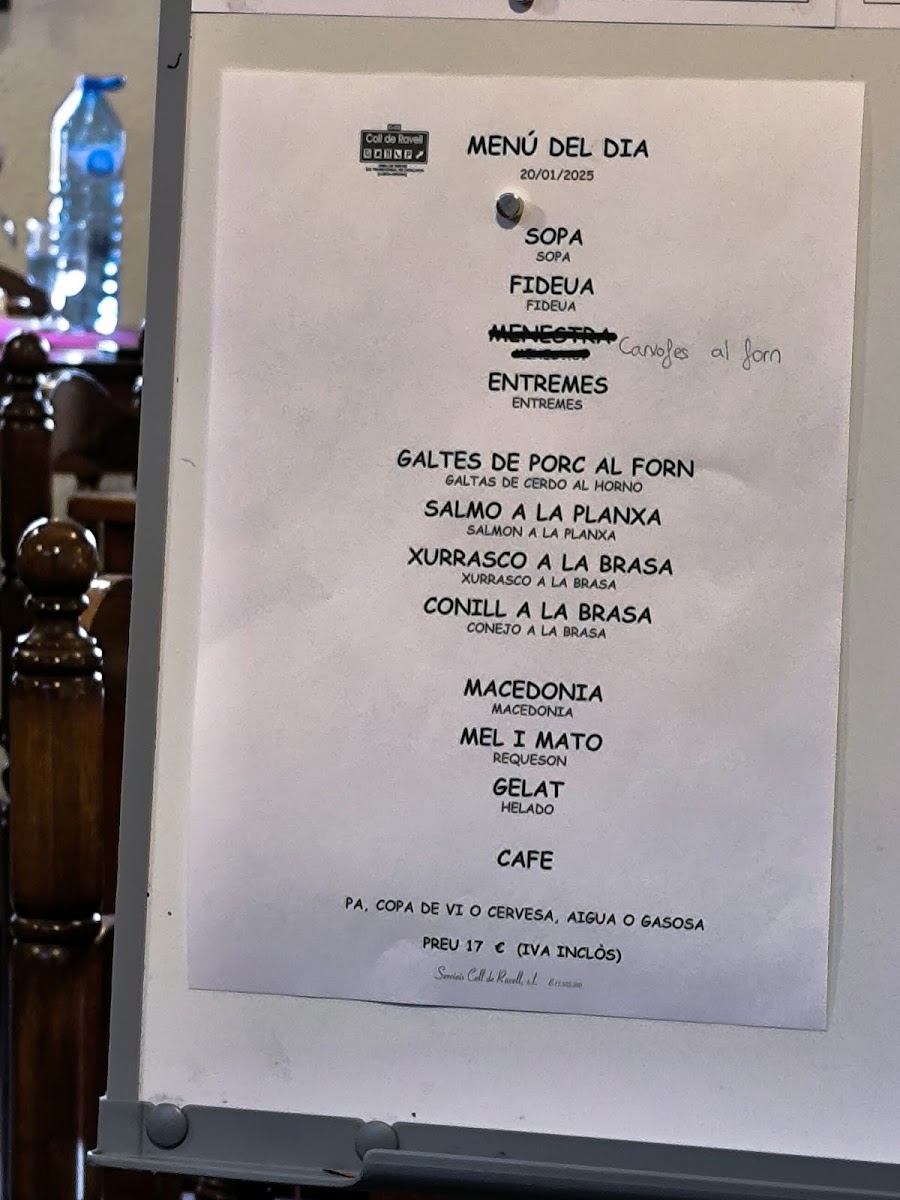 Coll de Ravell
MENÚ DEL DIA
20/01/2025
SOPA
SOPA
FIDEUA
FIDEUA
MENESTRA
Carxofes al forn
ENTREMES
ENTREMES
GALTES DE PORC AL FORN
GALTAS DE CERDO AL HORNO
SALMO A LA PLANXA
SALMON A LA PLANXA
XURRASCO A LA BRASA
XURRASCO A LA BRASA
CONILL A LA BRASA
CONEJO A LA BRASA
MACEDONIA
MACEDONIA
MEL I MATO
REQUESON
GELAT
HELADO
CAFE
PA, COPA DE VI O CERVESA, AIGUA O GASOSA
PREU 17 € (IVA INCLÒS)
Serveis Coll de Ravell, s.l.